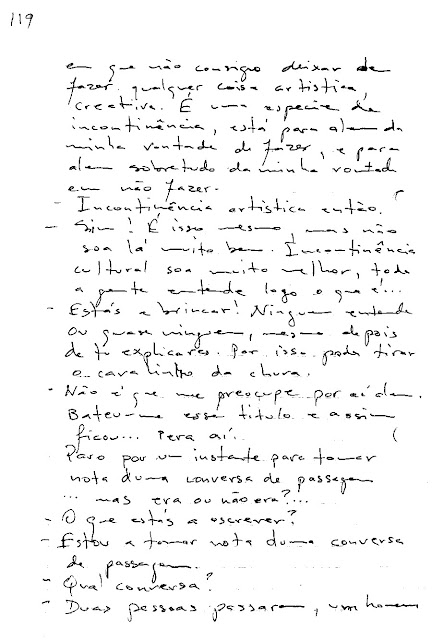 119
em que não consigo deixar de
fazer qualquer coisa artistica,
creativa. É uma especie de
incontinência, está para alem da
minha vontade de fazer, e para
alem sobretudo da minha vontade
em não fazer.
- Incontinência artistica então.
- Sim! É isso mesmo, mas não
soa lá muito bem. Incontinência
cultural soa muito melhor, toda
a gente entende logo o que é...
- Estás a brincar! Ninguem entende
ou quase ninguem, mesmo depois
de tu explicares. Por isso podes tirar
o cavalinho da chuva.
- Não é que me preocupe por aí alem.
Bateu-me esse titulo e assim
ficou... Pera aí..
Paro por um instante para tomar
nota duma conversa de passagem
... mas era ou não era?...
- O que estás a escrever?
- Estou a tomar nota duma conversa
de passagem.
- Qual conversa?
- Duas pessoas passaram, um homem